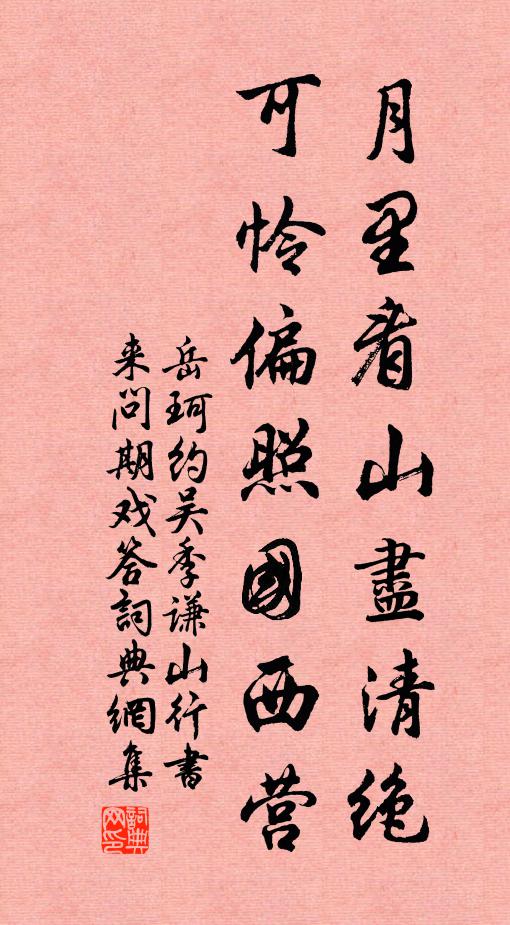 月里看山盡清绝
可怜偏照國西营
岳珂约吴季谦山行書
来问期戏答詞典網集
詞典
网印